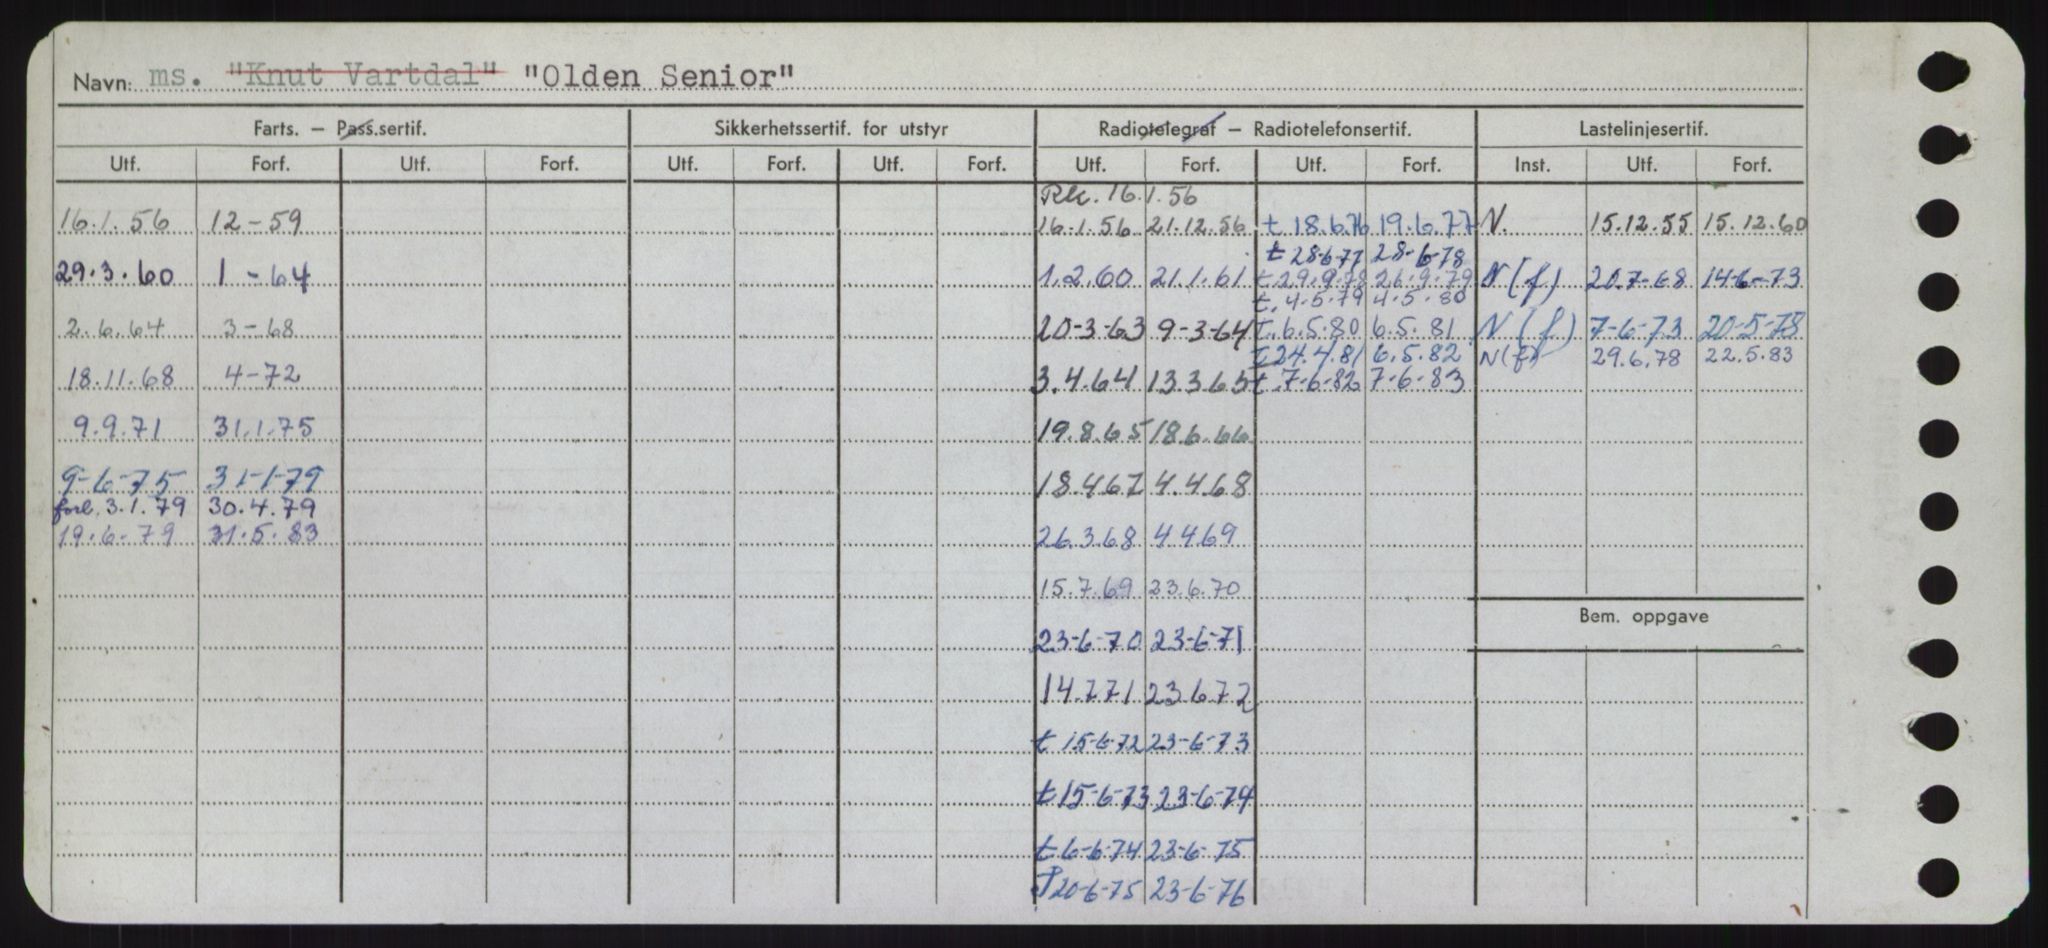 Navn: ms. "Knut Vartdal" "Olden Senior"
Farts. – Pass.sertif. Sikkerhetssertif. for utstyr Radiotelegraf – Radiotelefonsertif. Lastelinjesertif.
Utf. Forf. Utf. Forf. Utf. Forf. Utf. Forf. Utf. Forf. Utf. Forf. Inst. Utf. Forf.
Rk. 16.1.56
16.1.56 12-59 16.1.56 21.12.56 t 18.6.76 19.6.77 N. 15.12.55 15.12.60
t 28-6-77 28-6-78
29.3.60 1-64 1.2.60 21.1.61 t.29.9.78 26.9.79 N(f) 20.7-68 14-6-73
t. 4.5.79 4.5.80
2.6.64 3-68 20-3-63 9-3-64 t.6.5.80 6.5.81 N(f) 7-6-73 20-5-78
t 24.4.81 6.5.82 N(f) 29.6.78 22.5.83
18.11.68 4-72 3.4.64 13.3.65 t.7-6-82 7-6-83
9.9.71 31.1.75 19.8.65 18.6.66
9-6-75 31-1-79 18.4.67 4.4.68
forl. 3.1.79 30.4.79
19.6.79 31.5.83 26.3.68 4.4.69
15.7.69 23.6.70
Bem. oppgave
23-6-70 23-6-71
14.7.71 23.6.72
t 15-6-72 23-6-73
t 15-6-73 23-6-74
t 6-6-74 23-6-75
T 20-6-75 23-6-76